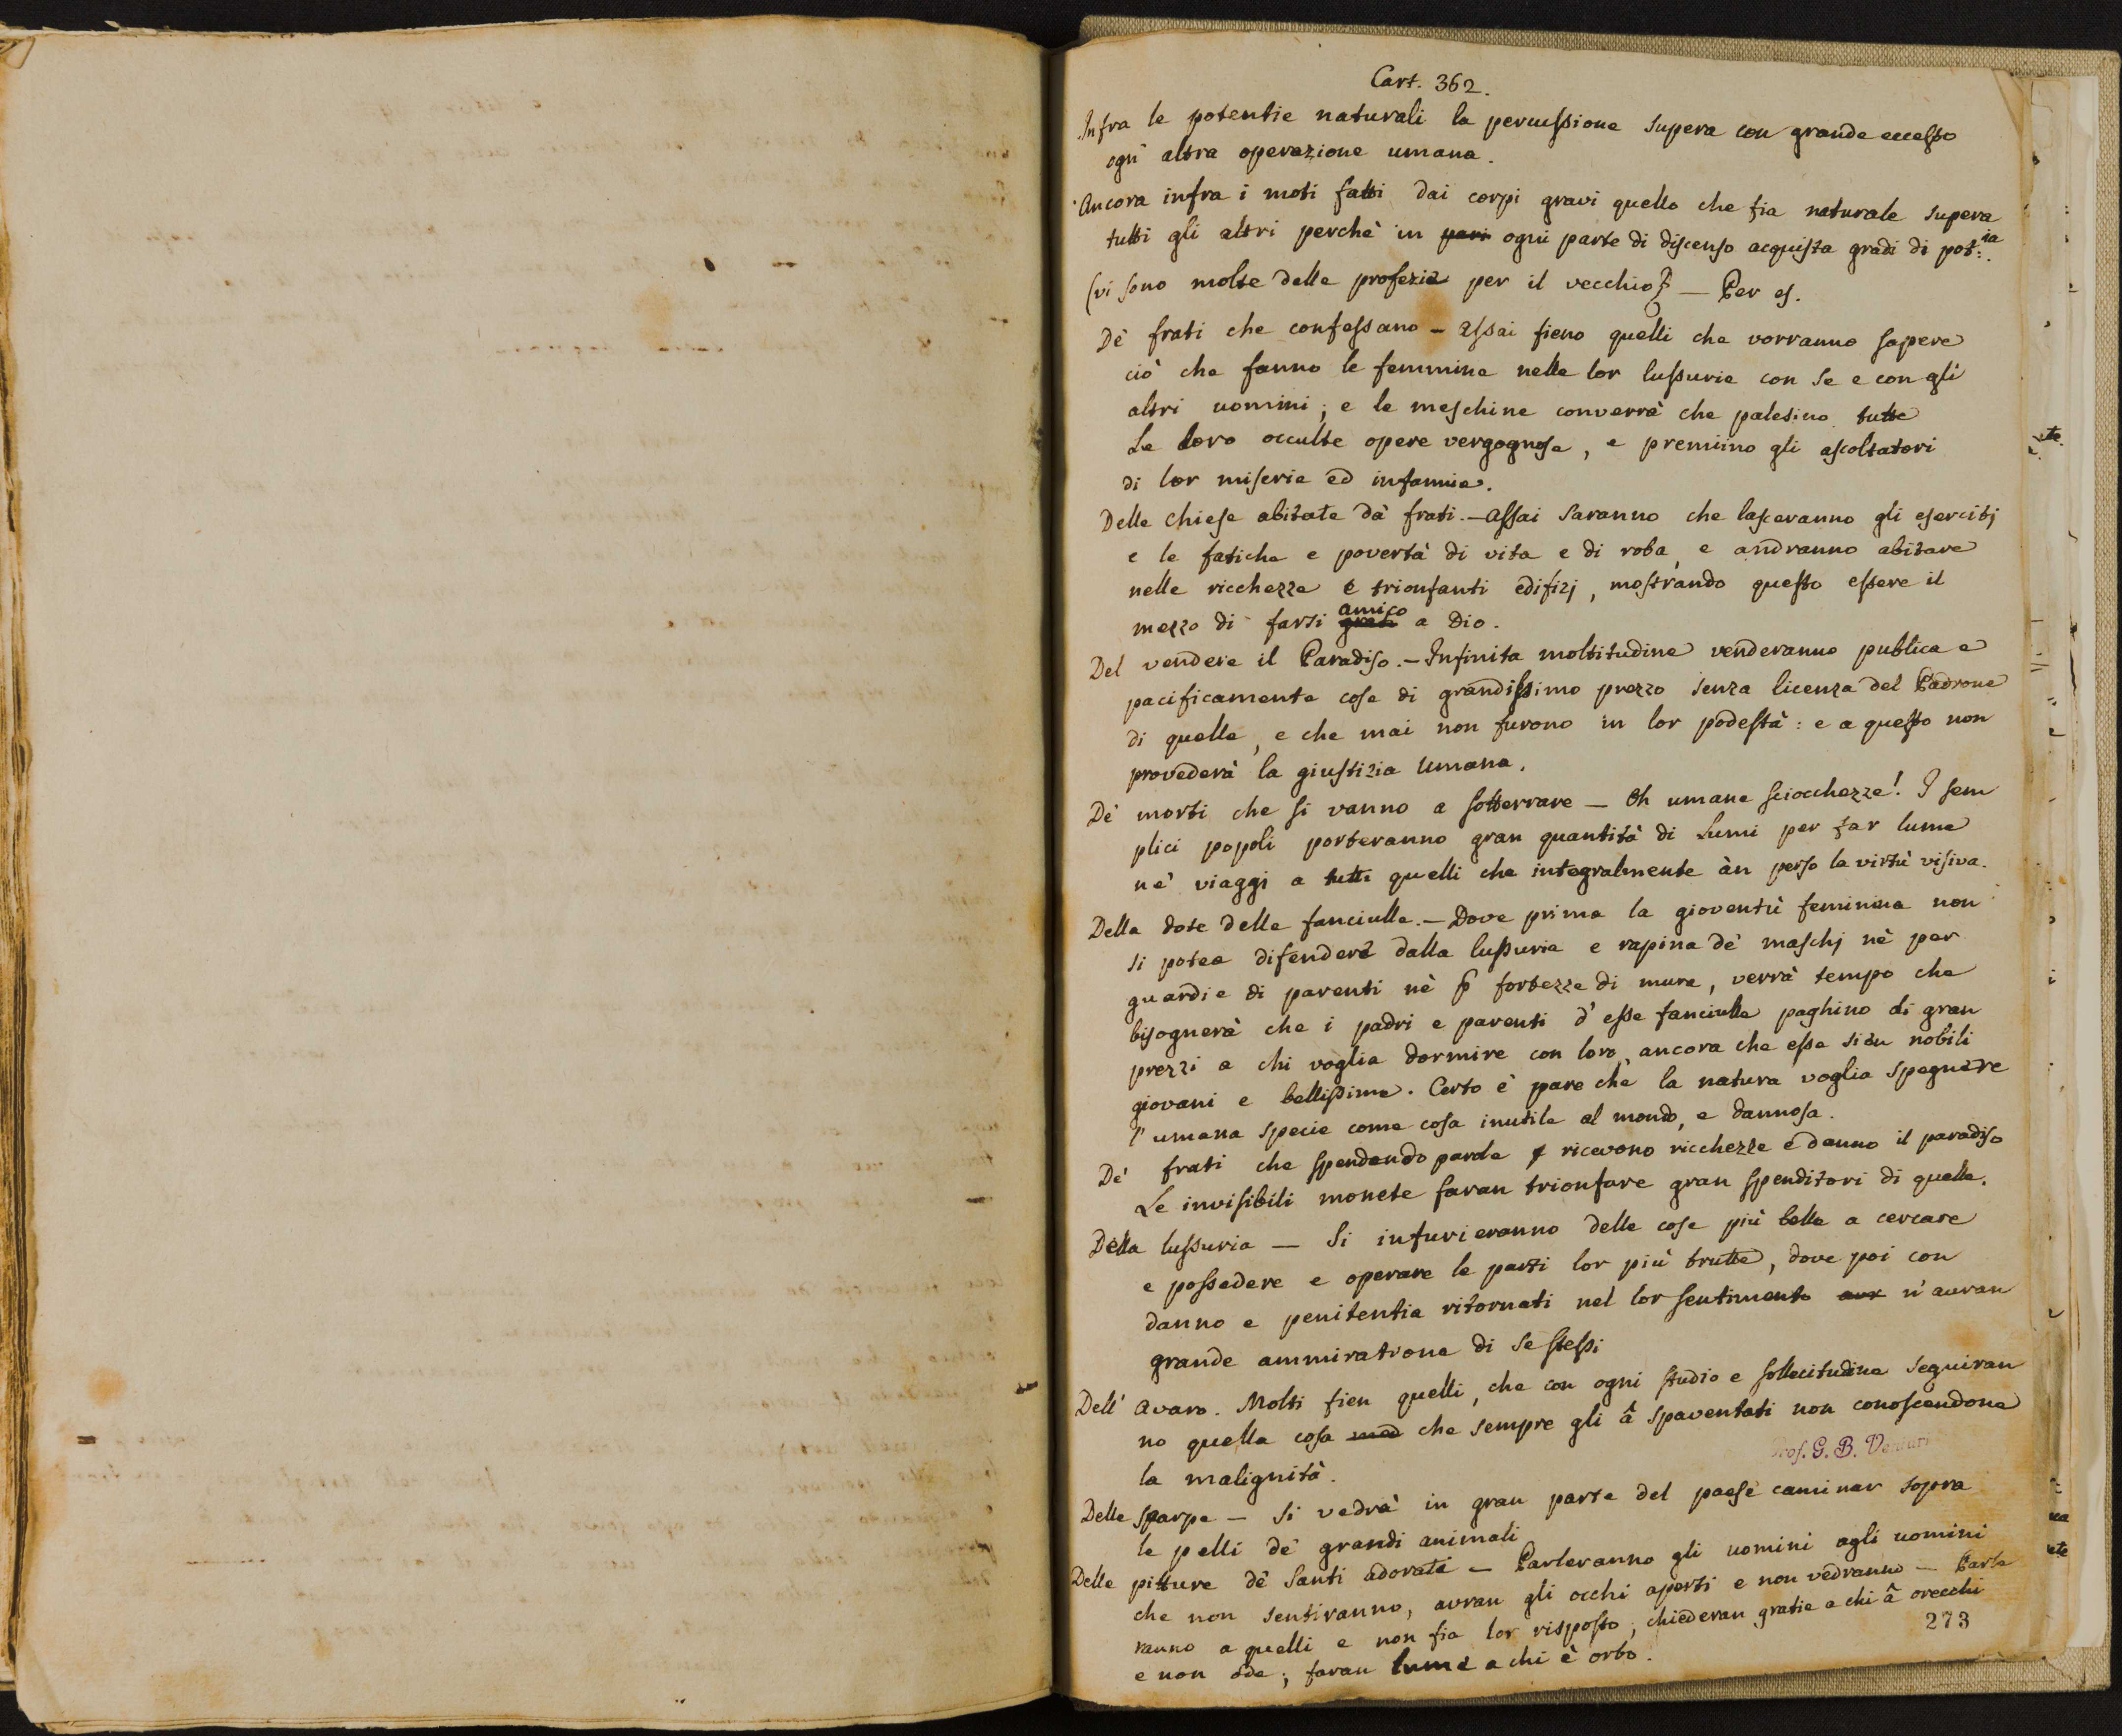 Cart. 362.
Infra le potentie naturali la percussione supera con grande eccesso
ogn' altra operazione umana.
Ancora infra i moti fatti dai corpi gravi quello che fia naturale supera
tutti gli altri perchè in pari ogni parte di discenso acquista gradi di pot:ia.
(vi sono molte delle profezie per il vecchio) — Per es.
Dè frati che confessano - assai fieno quelli che vorranno sapere
ciò che fanno le femmine nelle lor lussurie con se e con gli
altri uomini; e le meschine converrà che palesino tutte
Le loro occulte opere vergognose, e premiino gli ascoltatori
di lor miserie ed infamie.
Delle Chiese abitate dà frati. — Assai saranno che lasceranno gli esercitj
e le fatiche e povertà di vita e di roba, e andranno abitare
nelle ricchezze e trionfanti edifizj, mostrando questo essere il
mezzo di farsi grati amico a Dio.
Del vendere il Paradiso. — Infinita moltitudine venderanno publica e
pacificamente cose di grandissimo prezzo senza licenza del Padrone
di quelle, e che mai non furono in lor podestà: e a questo non
provederà la giustizia Umana.
Dè morti che si vanno a sotterrare — Oh umane sciocchezze! I sem
plici popoli porteranno gran quantità di Lumi per far lume
ne' viaggi a tutti quelli che integralmente àn perso la virtù visiva.
Della dote delle fanciulle. — Dove prima la gioventù feminina non
si potea difendere dalla lussuria e rapina dè maschj nè per
guardie di parenti nè p fortezze di mure, verrà tempo che
bisognerà che i padri e parenti d' esse fanciulle paghino di gran
prezzi a chi voglia dormire con loro, ancora che esse sien nobili
giovani e bellissime. Certo è pare che la natura voglia spegnere
l' umana specie come cosa inutile al mondo, e dannosa.
De' frati che spendendo parole ricevono ricchezze e danno il paradiso
Le invisibili monete faran trionfare gran spenditori di quelle.
Della lussuria — Si infurieranno delle cose più belle a cercare
e possedere e operare le parti lor più brutte, dove poi con
danno e penitentia ritornati nel lor sentimento aur n' auran
grande ammiratione di se stessi
Dell' avaro. Molti fien quelli, che con ogni studio e sollecitudine seguiran
no quella cosa med che sempre gli â spaventati non conoscendone
la malignità.
Prof. G. B. Venturi
Delle scarpe — Si vedrà in gran parte del paese caminar sopra
le pelli de' grandi animali
Delle pitture dè Santi adorate — Parleranno gli uomini agli uomini
che non sentiranno, avran gli occhi aperti e non vedranno — Parle
ranno a quelli e non fia lor risposto, chiederan gratie a chi â orecchi
e non ode; faran lume a chi è orbo.
273